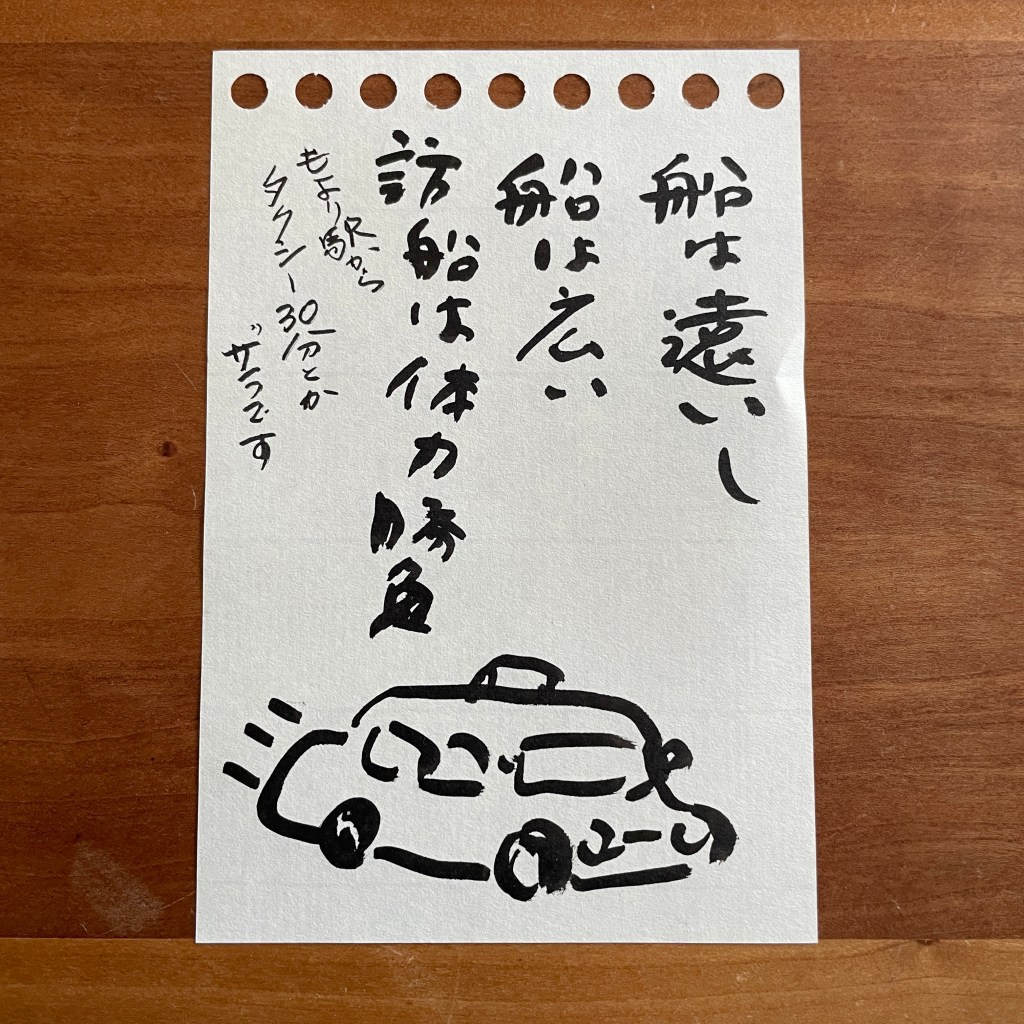 船は遠いし
船は広い
訪船は体力勝負
もより駅から
タクシー30分とか
ザラです